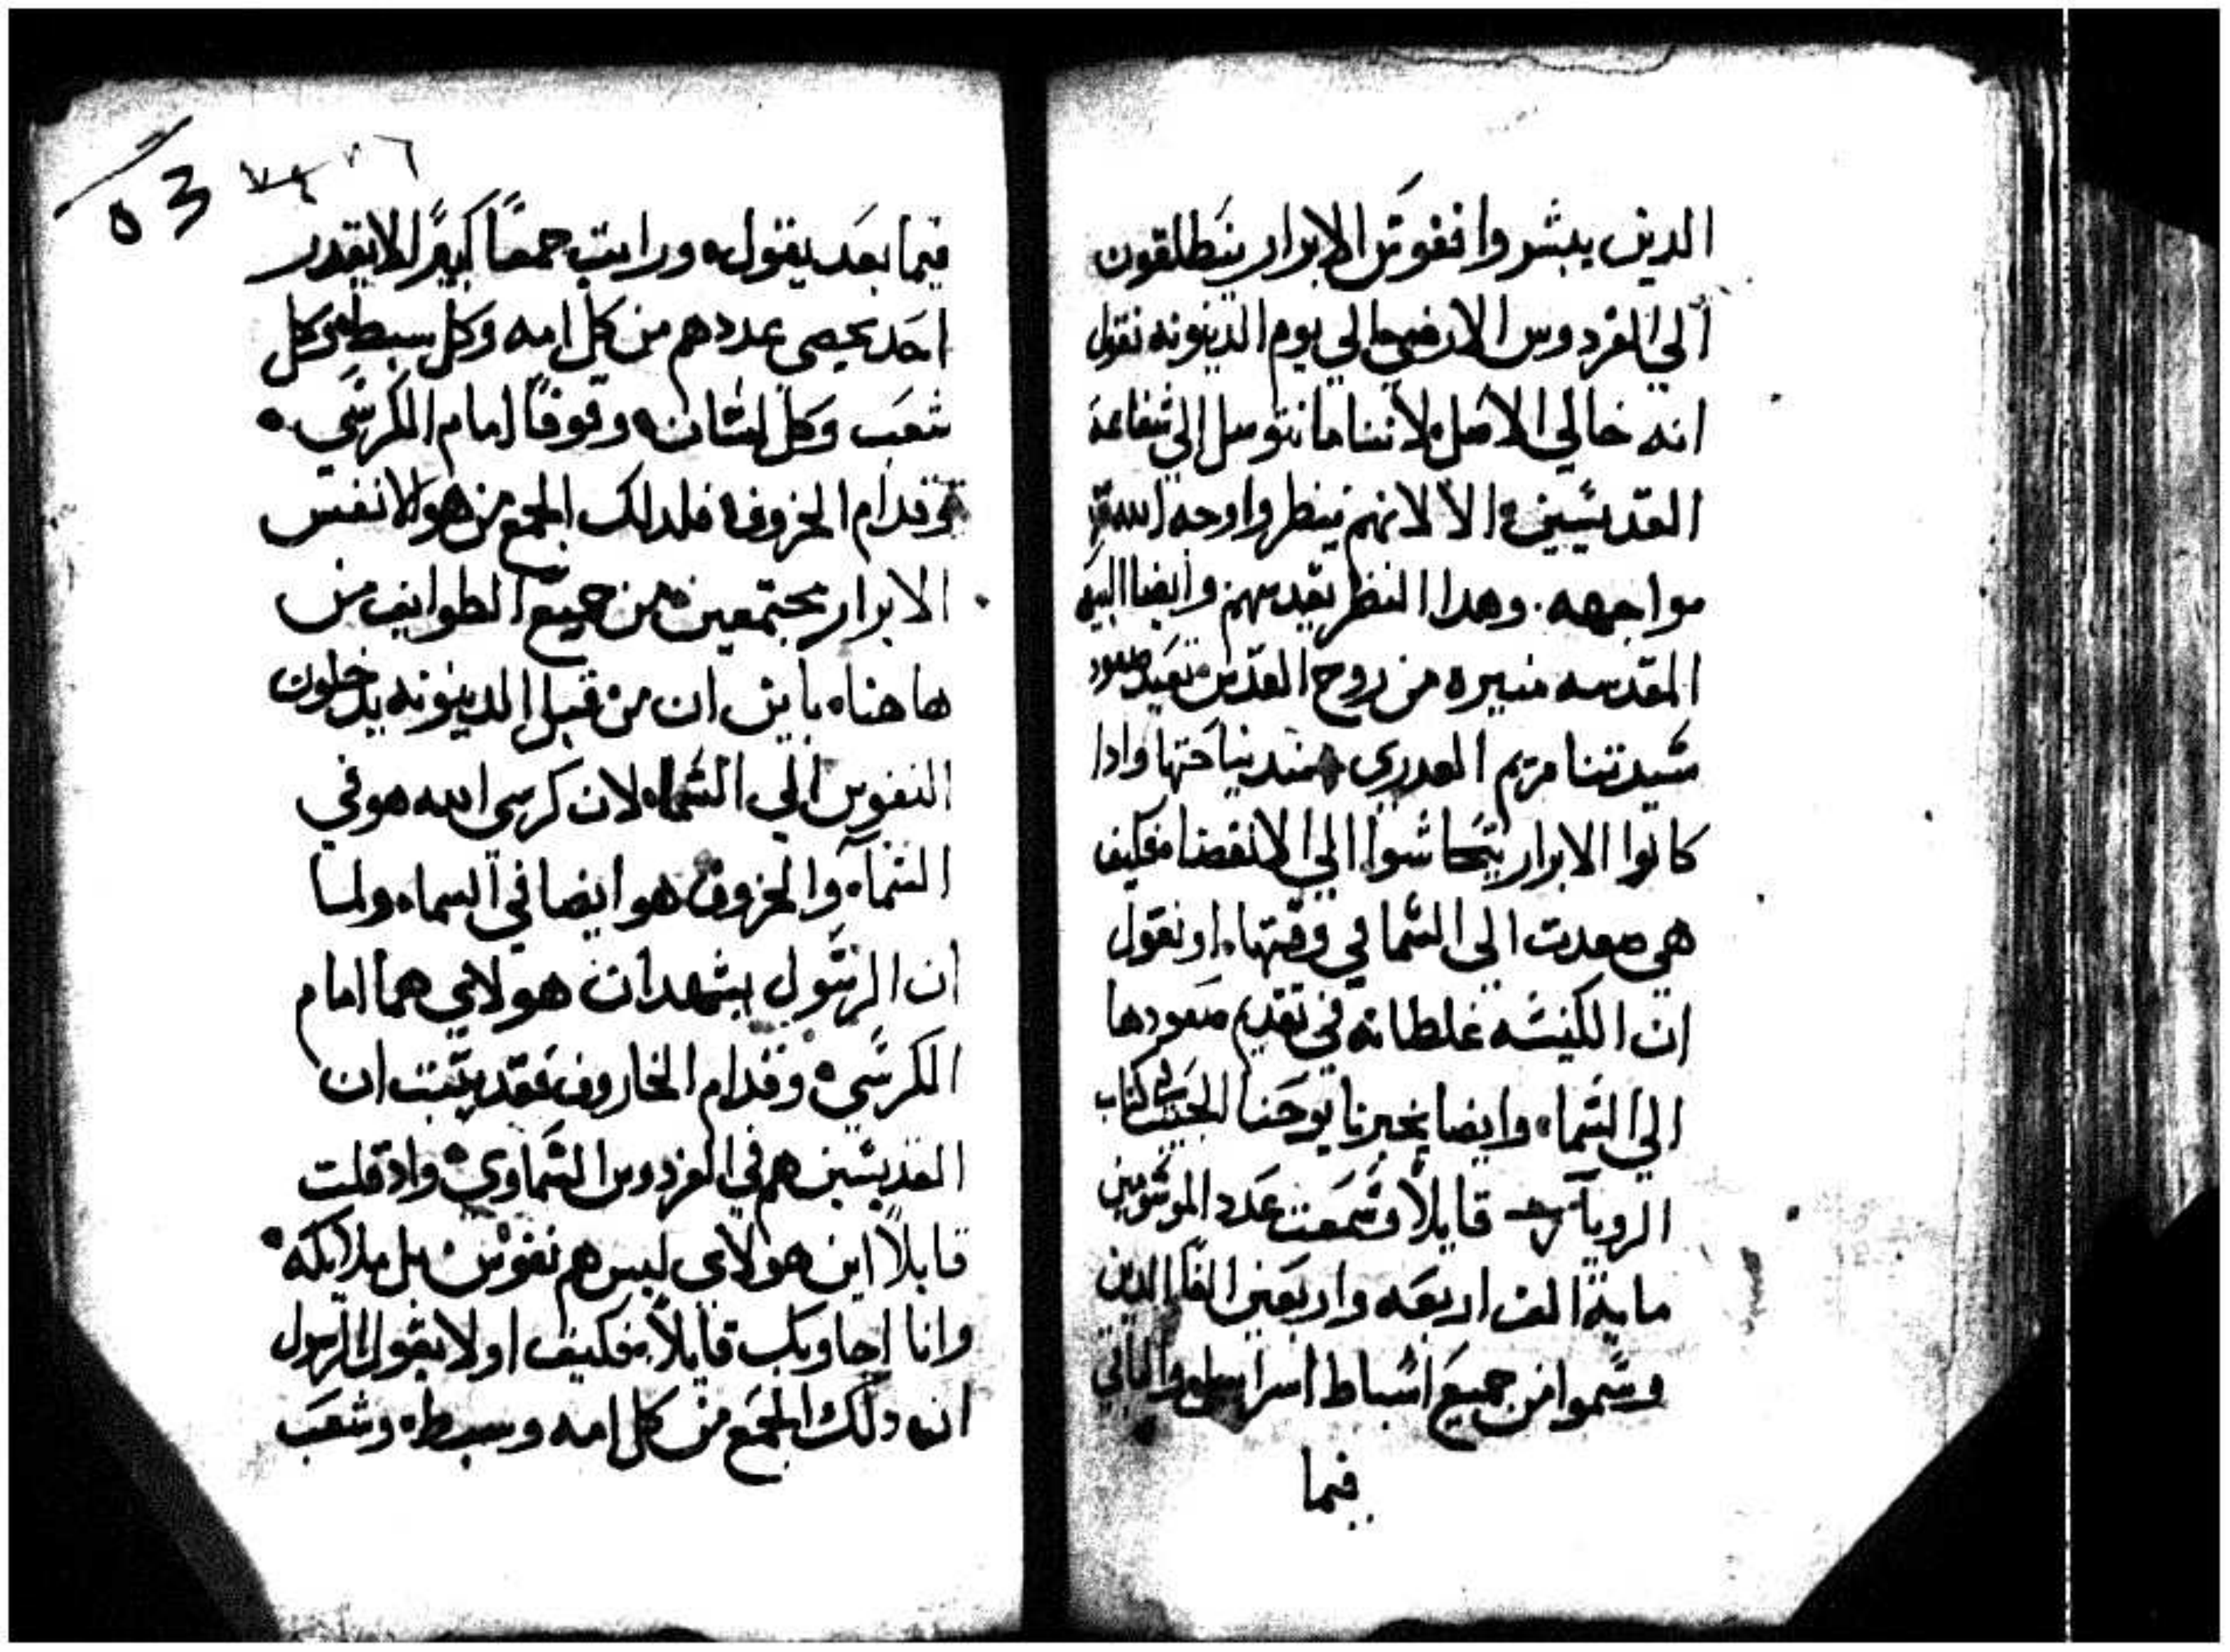 الدين يبشروا ففوس الابرار ينطلقون
الي الفردوس الارضي الي يوم الدينونه نقول
انه خالي الاصل لاننا ما نتوسل الي شفاعة
القديسين الا لانهم ينظروا وجه الله
مواجهه. وهدا النظر يقدسهم وايضا البيعه
المقدسه منيره من روح القدس تعيد صعود
سيدتنا مريم العدري عند نياحتها وادا
كانوا الابرار يتحاشوا الي الانقضا فكيف
هي صعدت الي السما في وقتها. او نقول
ان الكنيسه غلطانه في تقديم صعودها
الي السماه وايضا يخبرنا يوحنا الحبيب في كتاب
الرويا قايلاً وسمعت عدد الموسومين
ماية الف اربعه واربعين الفا الدين
وسموا من جميع اسباط اسراييل والباقي
فيما
53
٧٦
فيما بعد يقول ورايت جمعاً كبيراً لا يقدر
احد يحصي عددهم من كل امه وكل سبط وكل
شعب وكل لسان وقوفاً امام الكرسي
وقدام الخروف فلدلك الجمع من هولا نفس
الابرار مجتمعين من جميع الطوايف من
هاهناه باين ان من قبل الدينونه يدخلون
النفوس الي السماه لان كرسي الله هو في
السماه والخروف هو ايضا في السماه ولما
ان الرسول يشهد ان هولاي هما امام
الكرسي وقدام الخاروف فقد يتبت ان
القديسين هم في الفردوس السماوي وادقلت
قايلاً اين هولاي ليس هم نفوس بل ملايكه
وانا اجاوبك قايلاً فكيف اولا يقول الرسول
ان دلك الجمع من كل امه وسبط وشعب